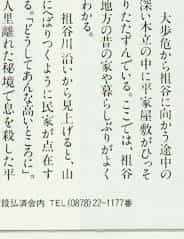 大歩危から祖谷に向かう途中の
深い木立の中に平家屋敷がひっそ
りたたずんでいる。ここでは、祖谷
地方の昔の家や暮らしぶりがよく
わかる。
祖谷川沿いから見上げると、山
にへばりつくように民家が点在す
る。「どうしてあんな高いところに」。
人里離れた秘境で息を殺した平
済会内 TEL(0878)22-1177番